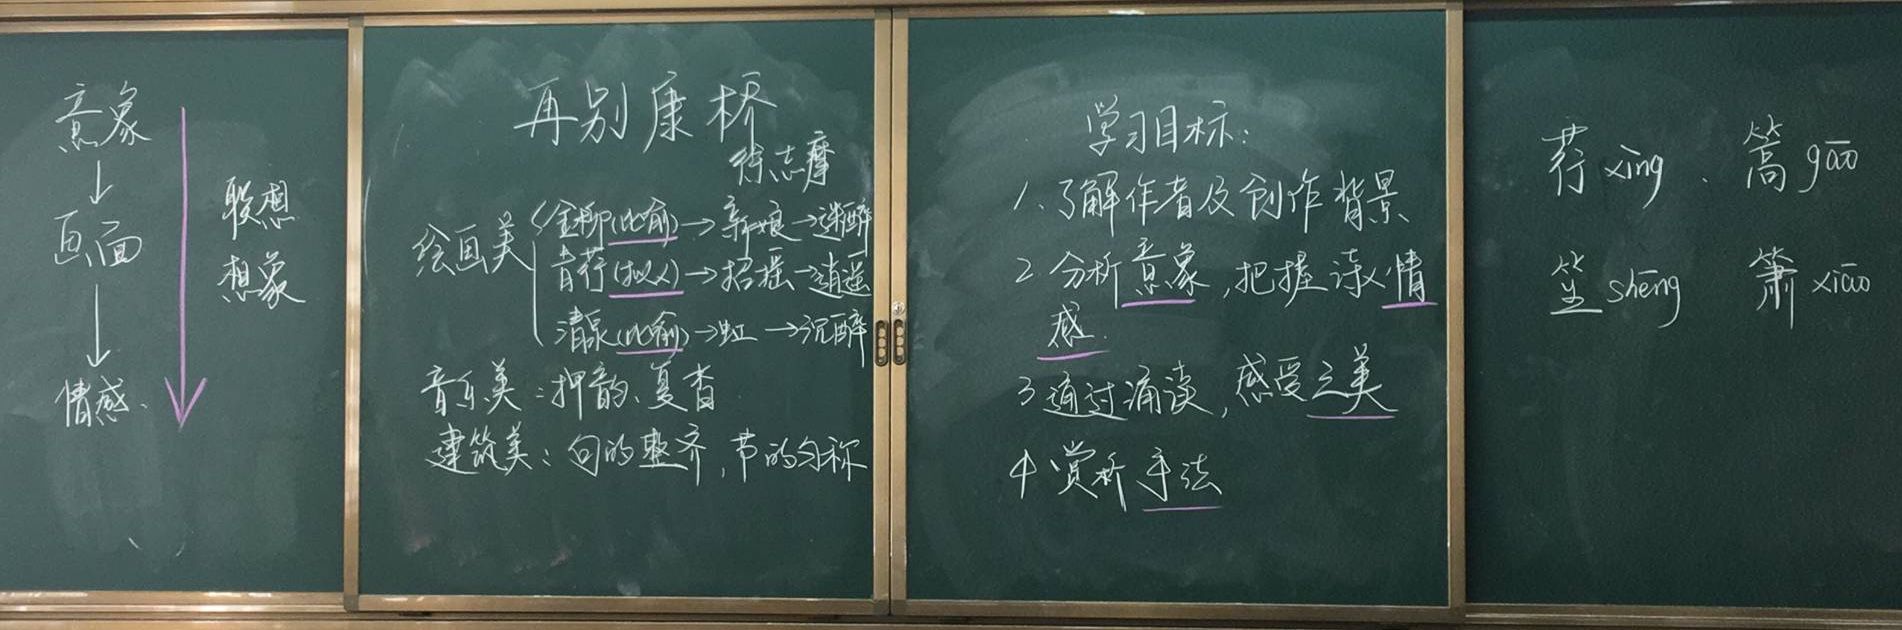 意象
↓
画面
↓
情感、
联想
想象
再别康桥
徐志摩
绘画美
金柳(比喻)→新娘→迷醉
青荇(拟人)→招摇→逍遥
清泉(比喻)→虹→沉醉
音乐美:押韵、复沓
建筑美:句的整齐,节的匀称
学习目标:
1.了解作者及创作背景
2 分析意象,把握诗人情
感.
3 通过诵读,感受之美
4 赏析手法
荇 xìng、篙 gāo
笙 shēng 箫 xiāo